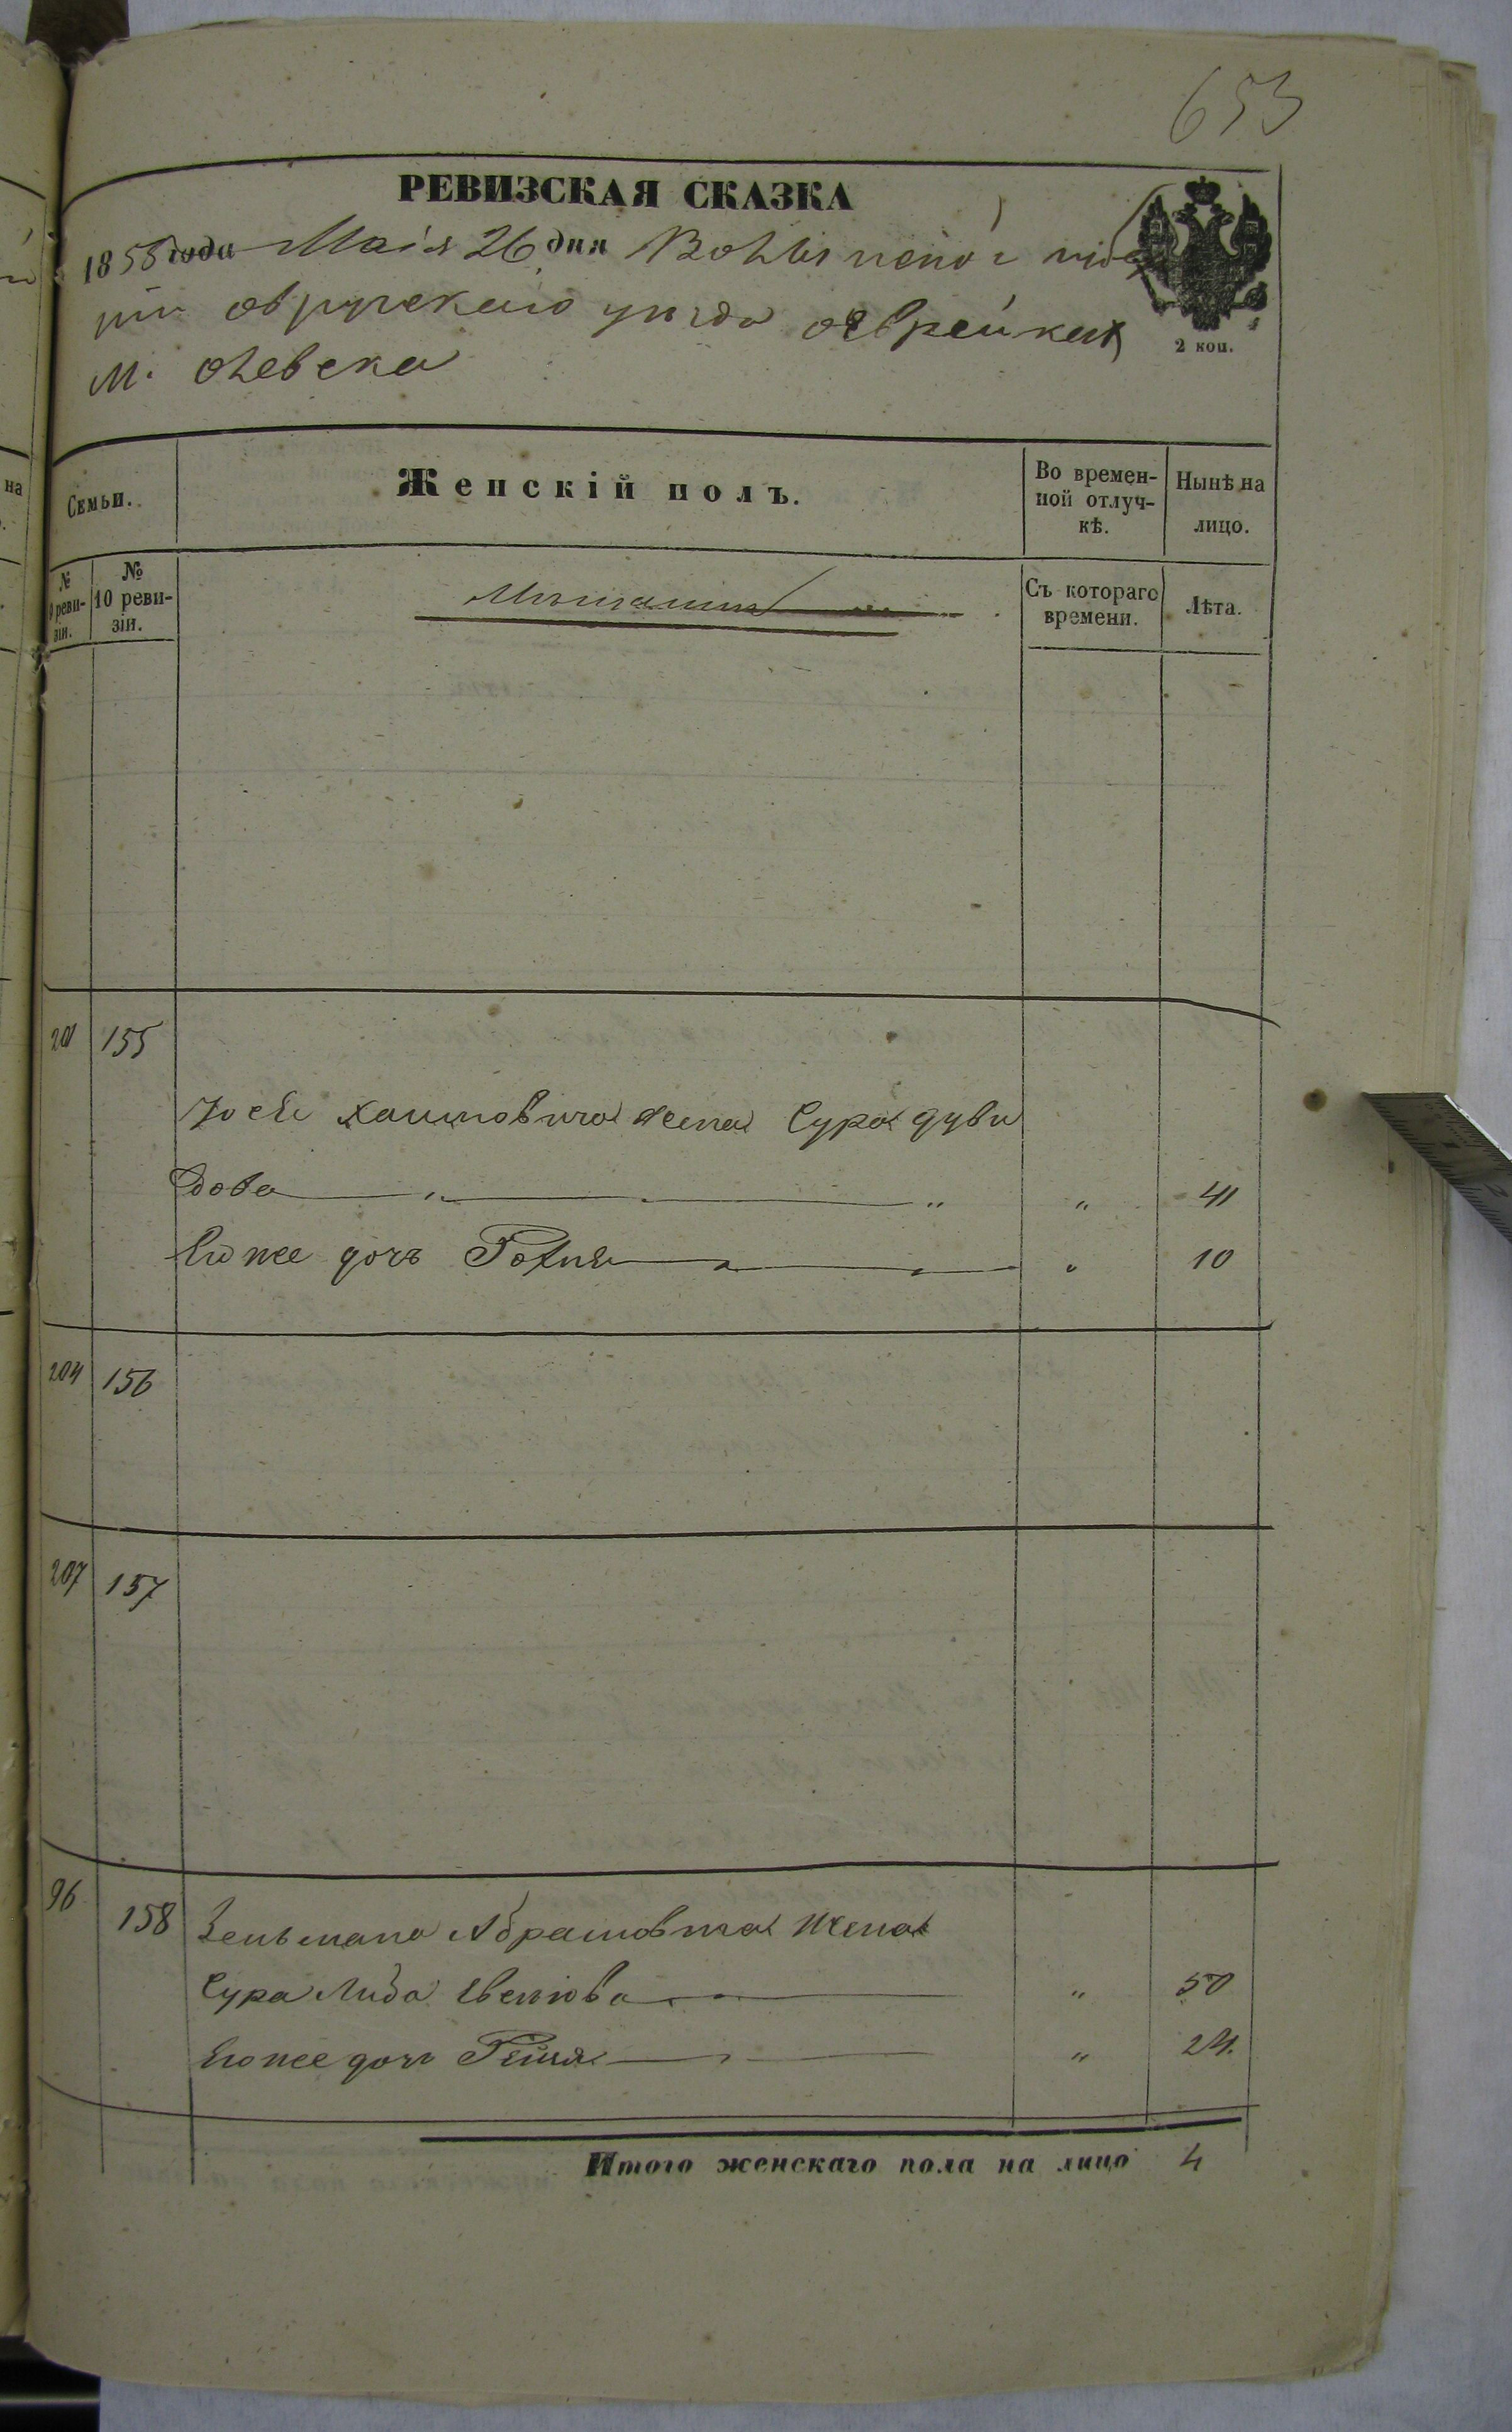 653
РЕВИЗСКАЯ СКАЗКА
1858 года Маія 26 дня Волынской губе
рніи овручскаго уѣзда о еврейках
м. олевска
2 коп.
Семьи.
Женскій полъ.
Во времен-
ной отлуч-
кѣ.
Нынѣ на
лицо.
№
реви-
зіи.
№
10 реви-
зіи.
Мѣщанина
Съ котораго
времени.
Лѣта.
201 155
Іосія Хаимовича жена Сура дуви
дова " " " 41
Еюже дочь Рохля " 10
204 156
207 157
96 158 Зельмана Абрамовича жена
Сура Либа " 50
Еюже дочь Рейзя " 24.
Итого женскаго пола на лицо 4
на